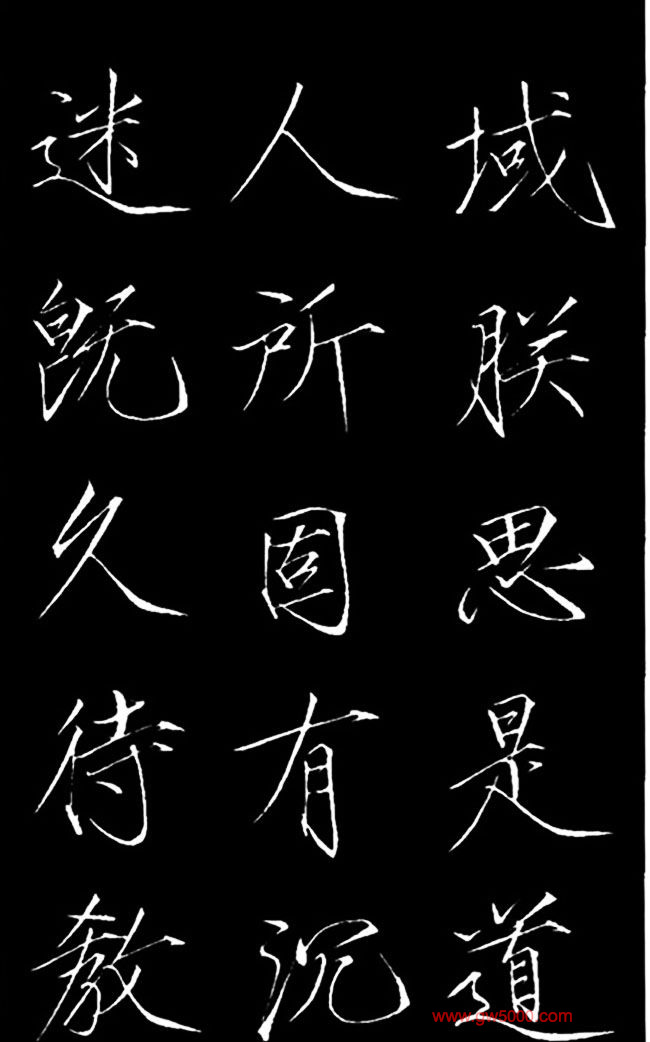 域朕思是道
人所固有沉
迷既久待教
www.gw5000.com